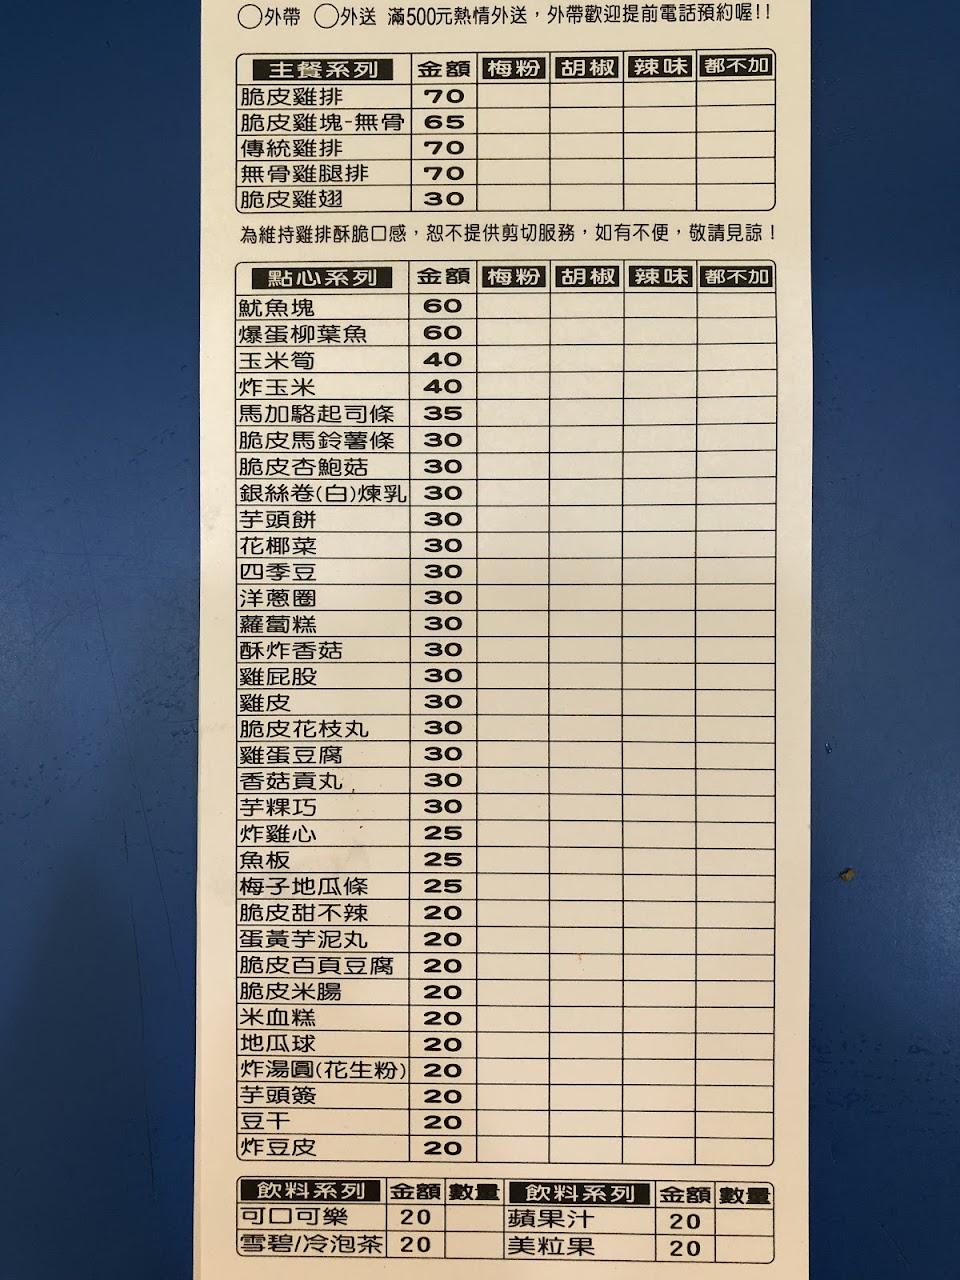 ◯外帶 ◯外送 滿500元熱情外送，外帶歡迎提前電話預約喔!!
主餐系列 金額 梅粉 胡椒 辣味 都不加
脆皮雞排 70
脆皮雞塊-無骨 65
傳統雞排 70
無骨雞腿排 70
脆皮雞翅 30
為維持雞排酥脆口感，恕不提供剪切服務，如有不便，敬請見諒！
點心系列 金額 梅粉 胡椒 辣味 都不加
魷魚塊 60
爆蛋柳葉魚 60
玉米筍 40
炸玉米 40
馬加駱起司條 35
脆皮馬鈴薯條 30
脆皮杏鮑菇 30
銀絲卷(白)煉乳 30
芋頭餅 30
花椰菜 30
四季豆 30
洋蔥圈 30
蘿蔔糕 30
酥炸香菇 30
雞屁股 30
雞皮 30
脆皮花枝丸 30
雞蛋豆腐 30
香菇貢丸 30
芋粿巧 30
炸雞心 25
魚板 25
梅子地瓜條 25
脆皮甜不辣 20
蛋黃芋泥丸 20
脆皮百頁豆腐 20
脆皮米腸 20
米血糕 20
地瓜球 20
炸湯圓(花生粉) 20
芋頭簽 20
豆干 20
炸豆皮 20
飲料系列 金額 數量 飲料系列 金額 數量
可口可樂 20 蘋果汁 20
雪碧/冷泡茶 20 美粒果 20